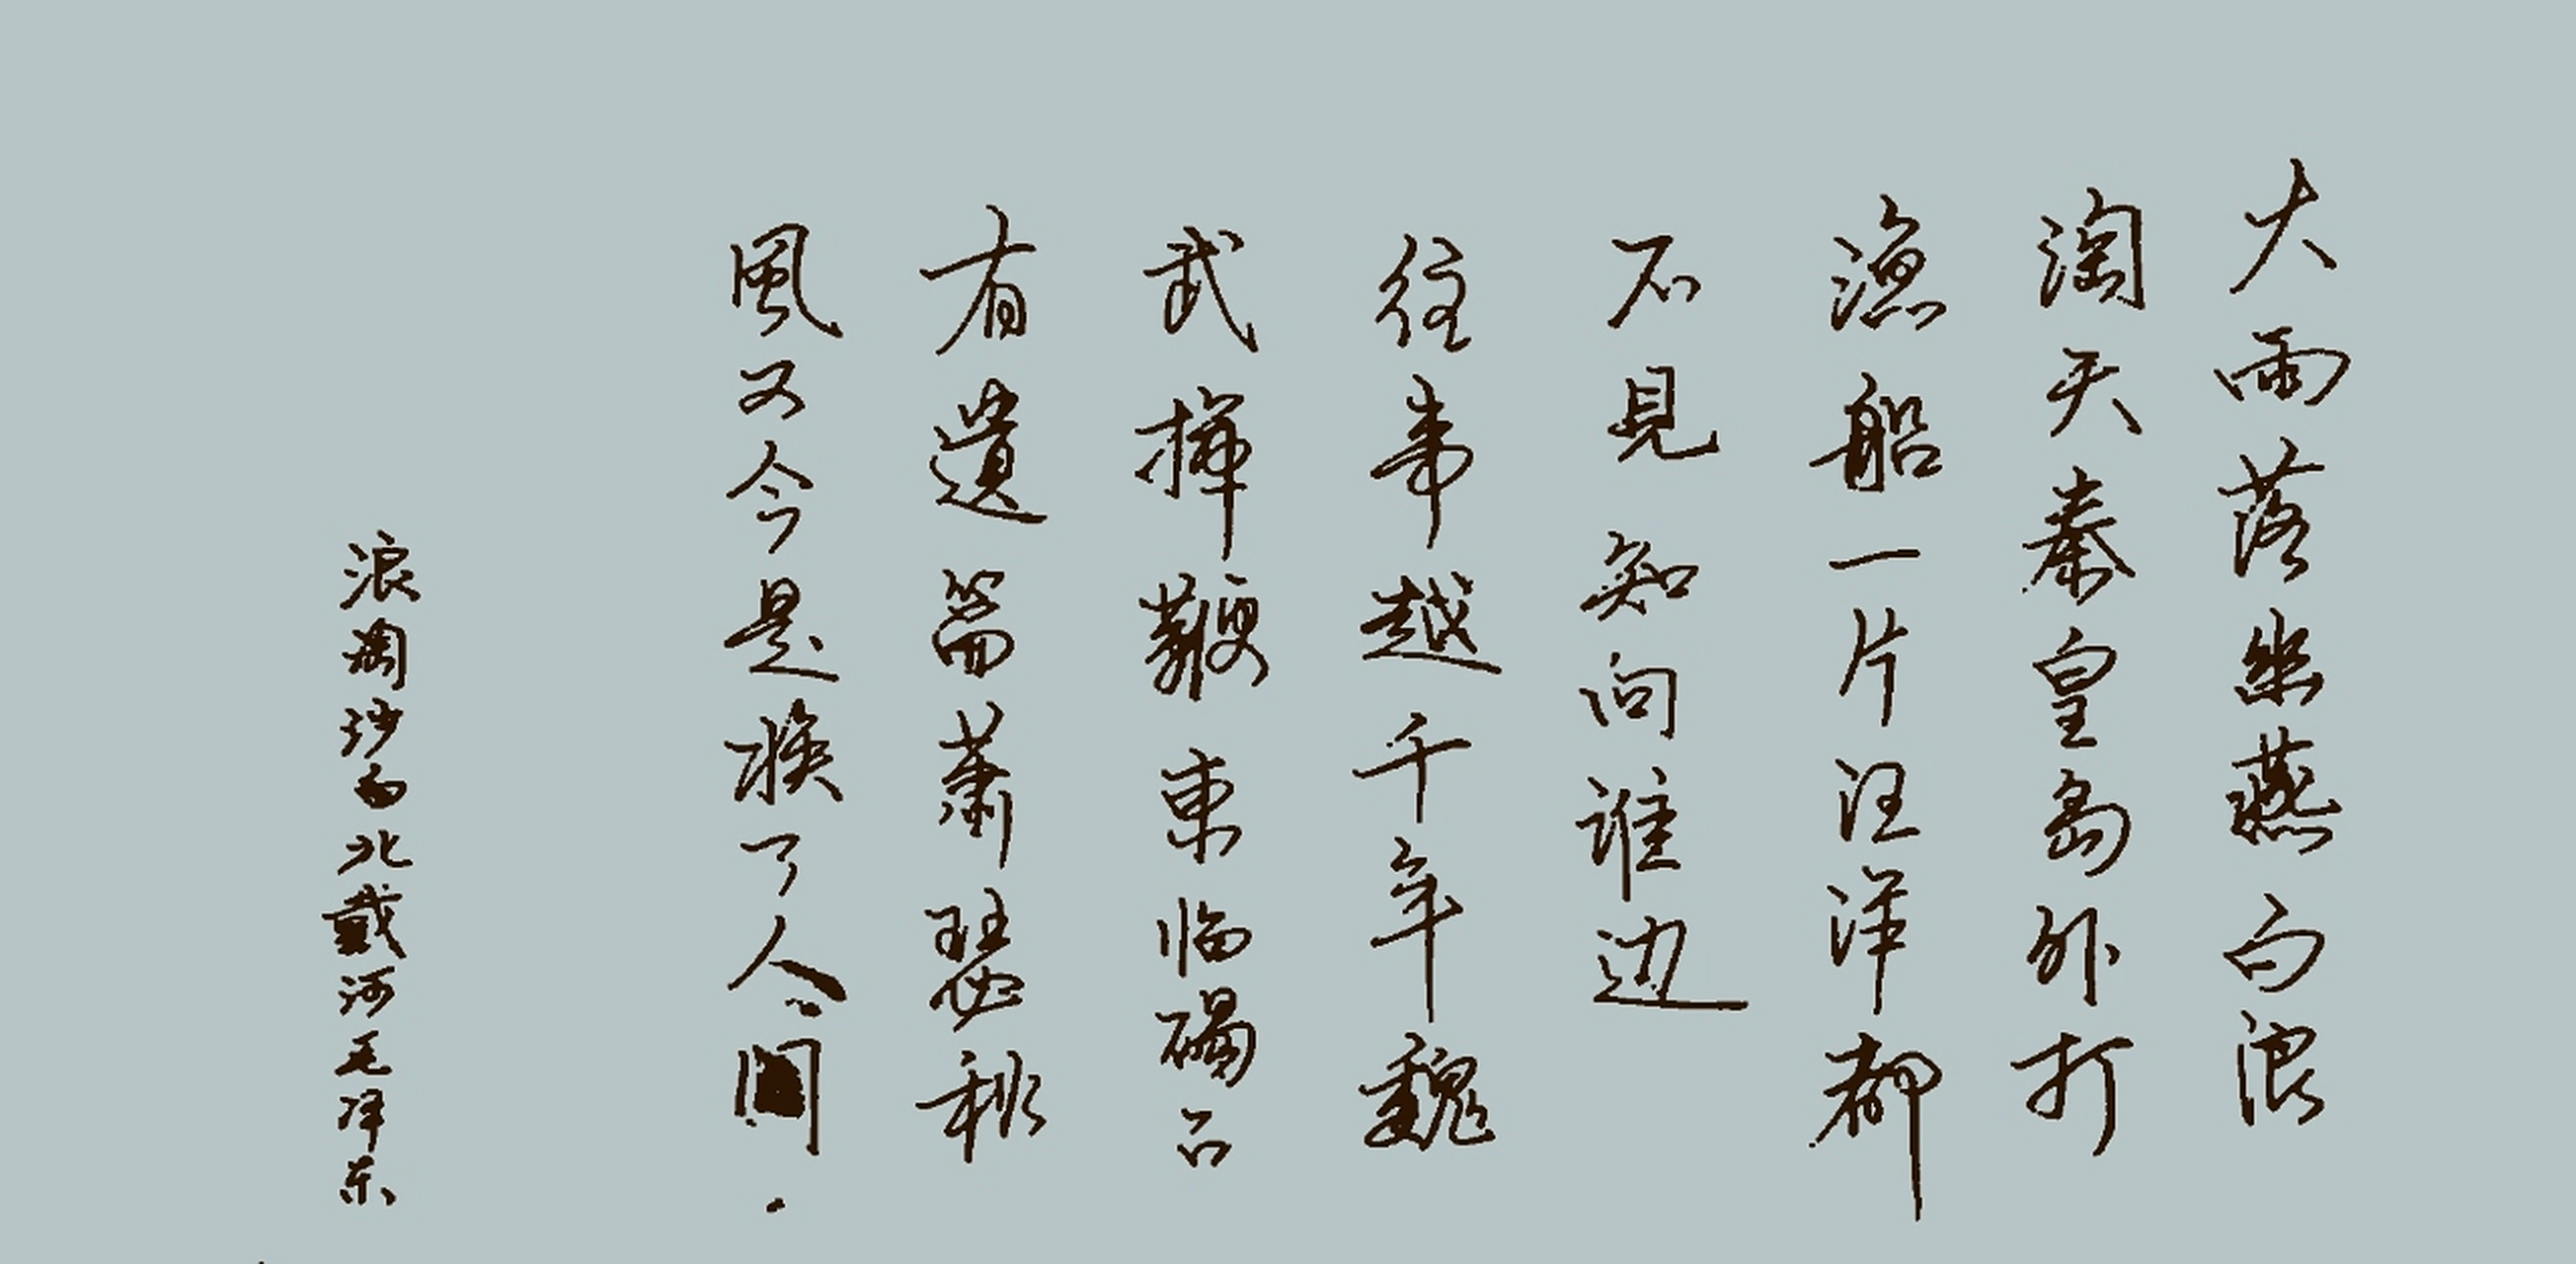 大雨落幽燕白浪
淘天秦皇島外打
漁船一片汪洋都
不見知向誰边
往事越千年魏
武揮鞭東临碣石
有遺篇蕭瑟秋
風又今是换了人間.
浪淘沙北戴河毛泽东